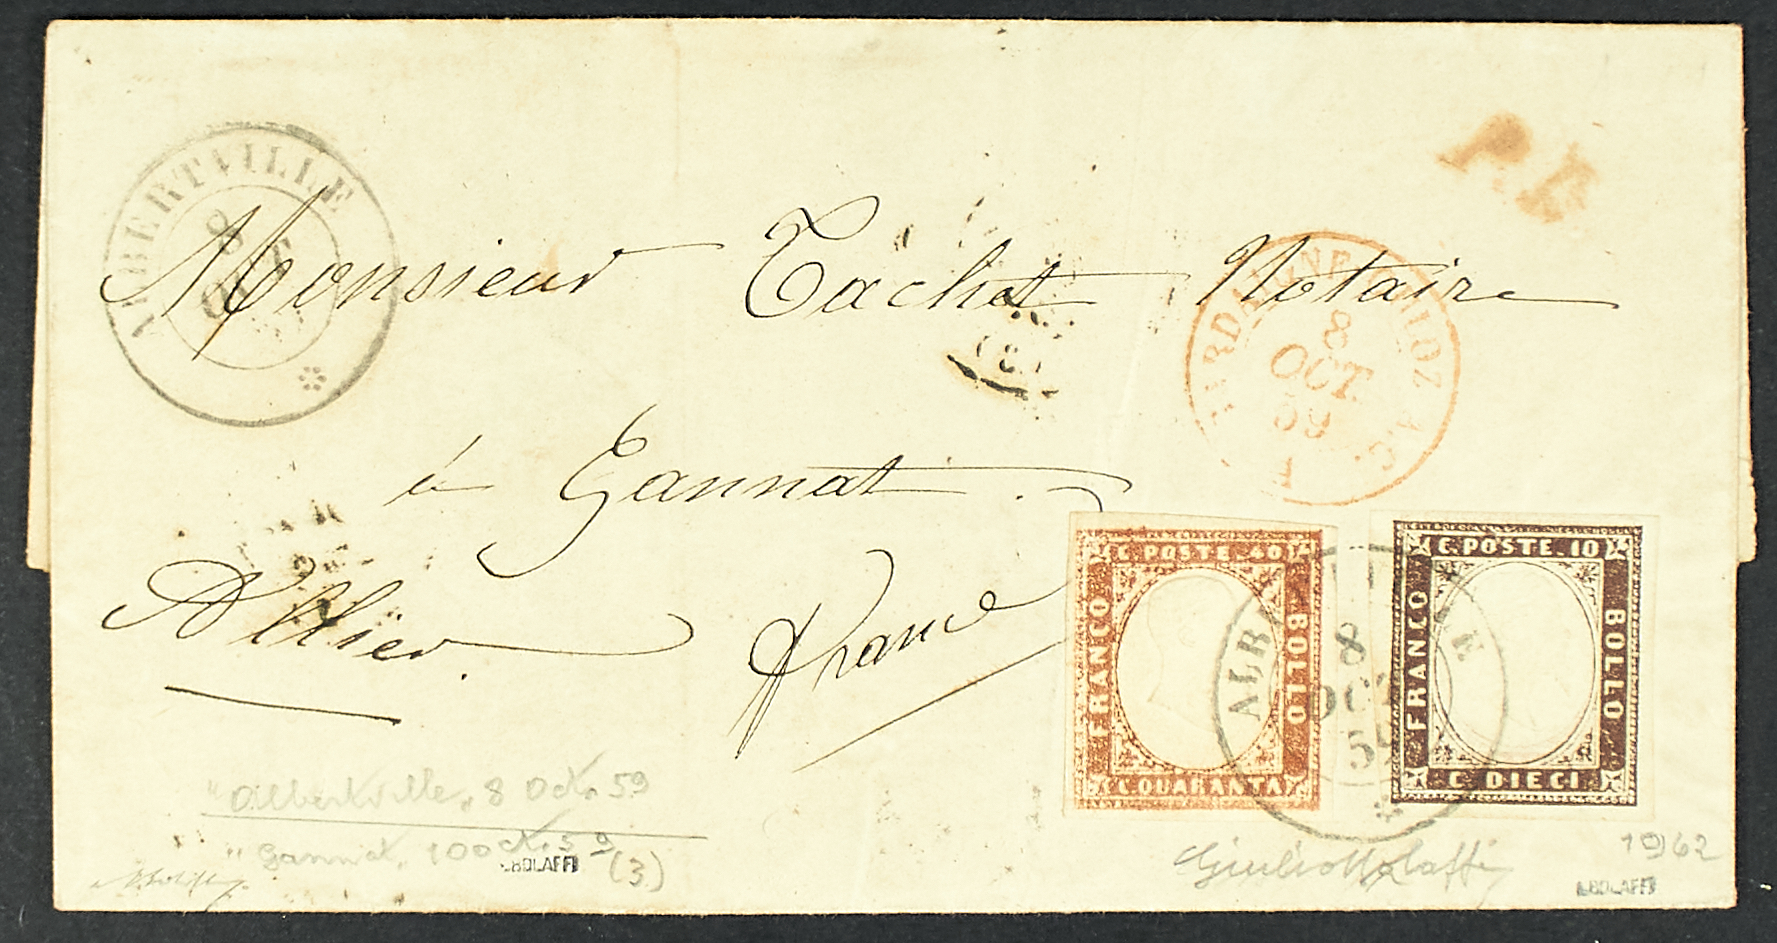 ALBERTVILLE
8 OCT
P.D.
Monsieur Tachet Notaire
8
OCT.
59
à Gannat
Allier France
C. POSTE. 40
FRANCO
BOLLO
C. QUARANTA
C. POSTE. 10
FRANCO
BOLLO
C. DIECI
ALBERTVILLE
8
OCT
59
"Albertville, 8 Oct. 59
"Gannat, 10 Oct. 59
(3)
BOLAFFI
Giulio Bolaffi
1962
BOLAFFI